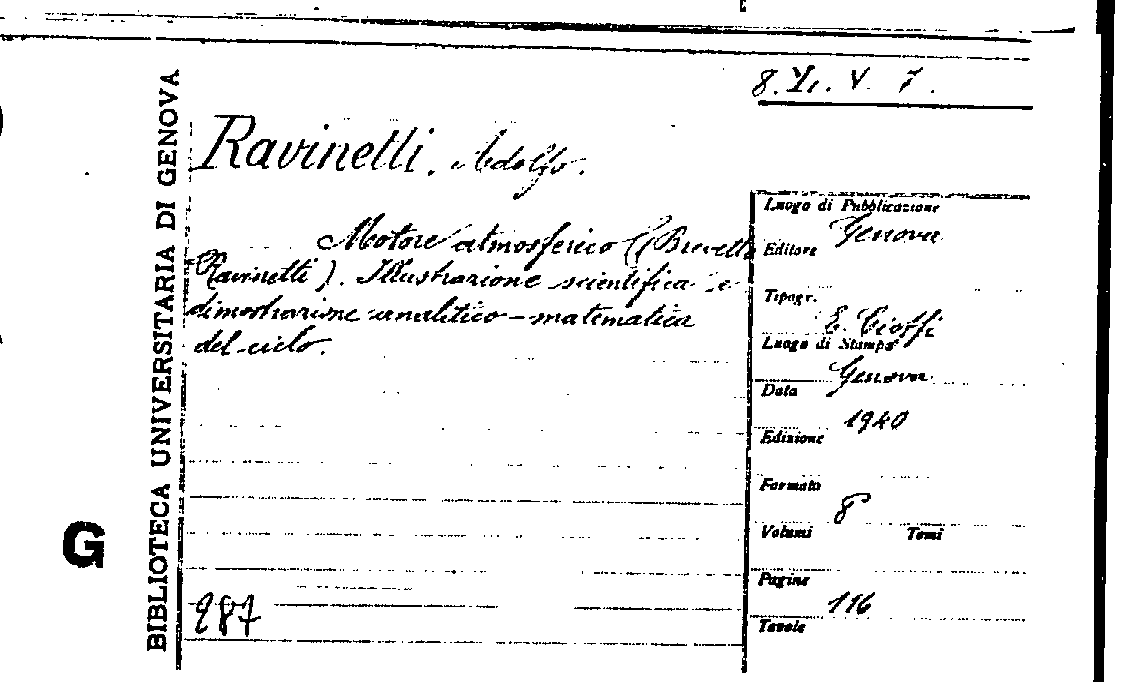 8. Y. V. 7.
BIBLIOTECA UNIVERSITARIA DI GENOVA
G
Ravinetti. Adolfo.
Motore atmosferico (Brevetto
Ravinetti). Illustrazione scientifica e
dimostrazione analitico-matematica
del ciclo.
287
Luogo di Pubblicazione
Genova
Editore
Tipogr.
E. Cioffi
Luogo di Stampa
Genova
Data
1940
Edizione
Formato
8
Volumi Tomi
Pagine
116
Tavole